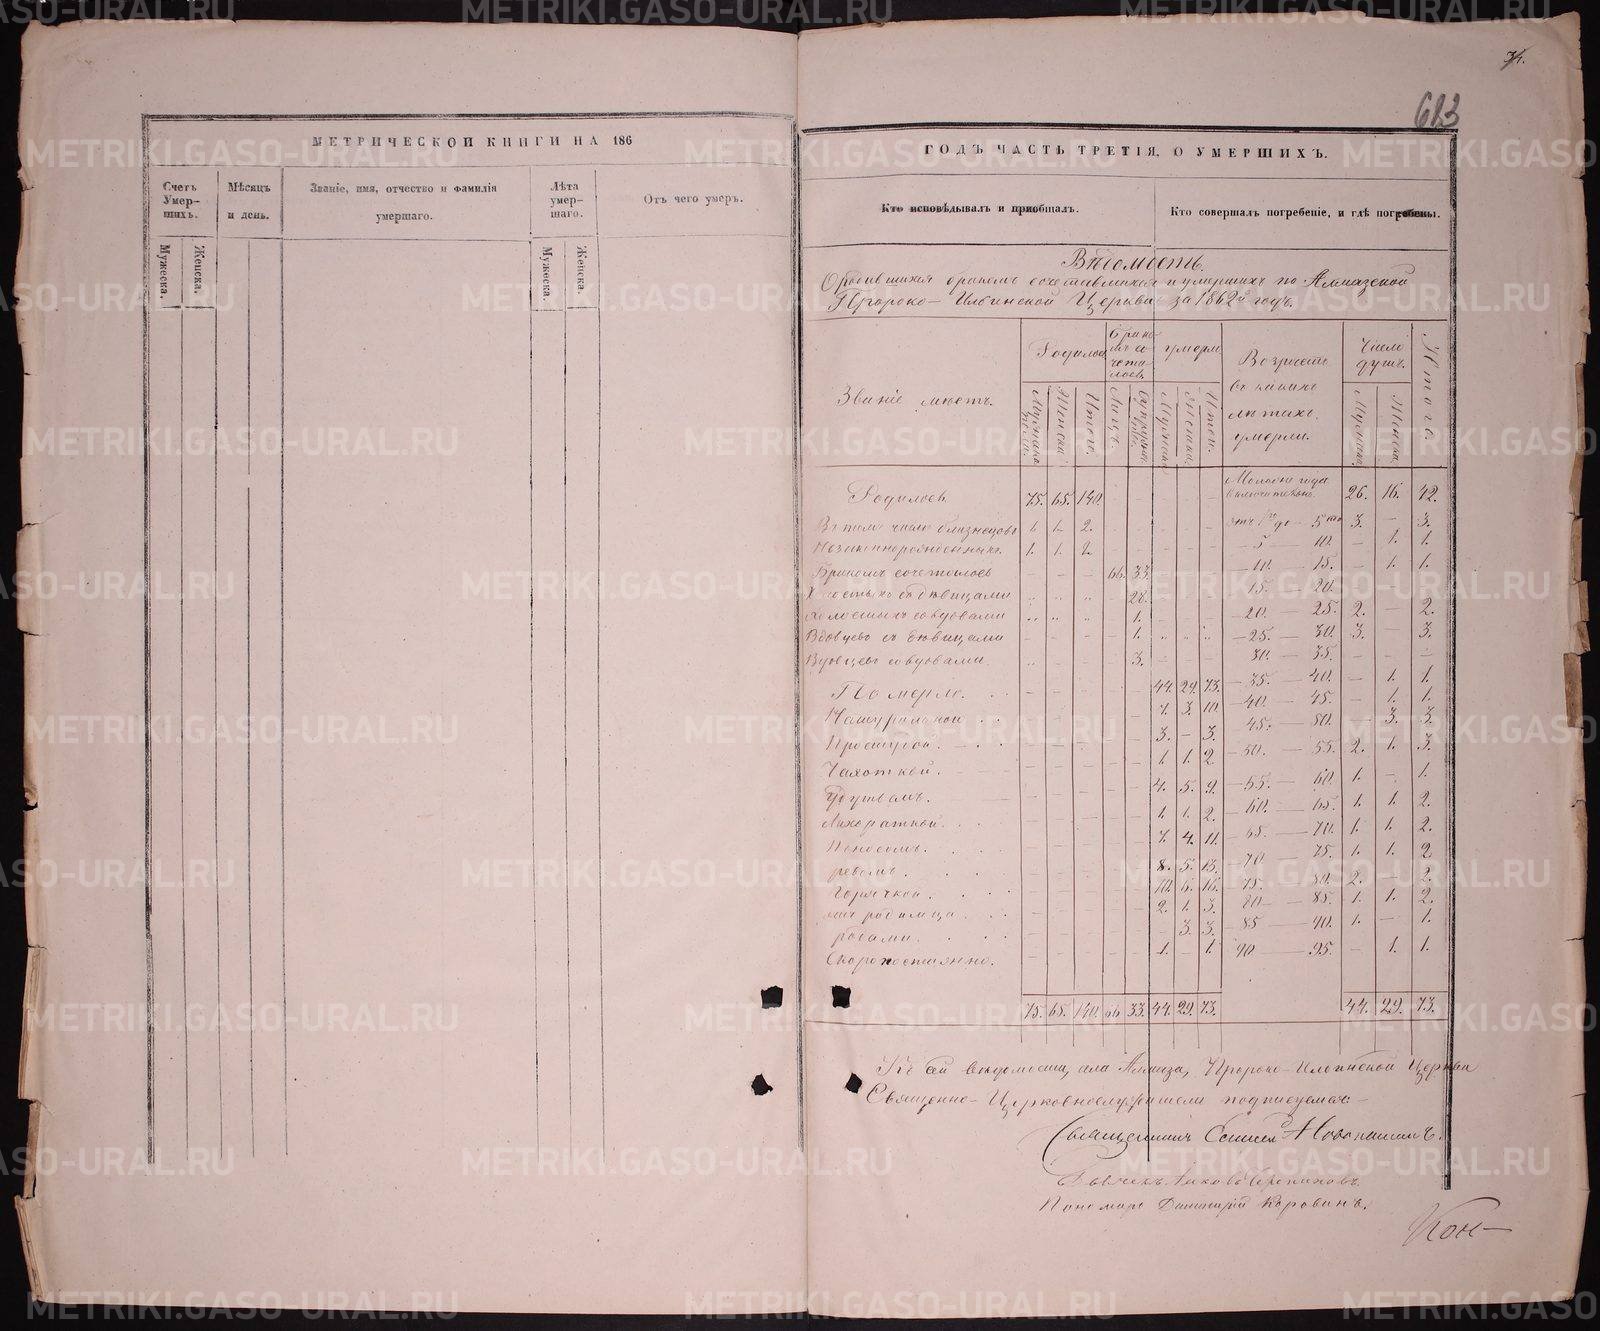 34.
613
МЕТРИЧЕСКОЙ КНИГИ НА 186
Счетъ Умер-шихъ.
Мѣсяцъ и день.
Званіе, имя, отчество и фамилія умершаго.
Лѣта умер-шаго.
Отъ чего умеръ.
Мужеска.
Женска.
Мужеска.
Женска.
ГОДЪ ЧАСТЬ ТРЕТІЯ, О УМЕРШИХЪ.
Кто исповѣдывалъ и пріобщалъ.
Кто совершалъ погребеніе, и гдѣ погребены.
Вѣдомость.
бракомъ и умершихъ по
Пророко-Ильинской Церкви за 1862й годъ.
Родилось
умерли
Возрастъ
въ какихъ
лѣтахъ
умерли.
Число
душъ.
Итого.
Званіе мѣстъ.
Женска
Итого.
Лицъ.
Родилось 75. 65. 140. 26. 16. 42.
Въ томъ числѣ близнецовъ 1 1. 2. отъ 1го до 5ти 3. — 3.
Незаконнорожденныхъ. 1. 1. 2. — 5 — 10. — 1. 1.
Бракомъ сочеталось — — — 66. 33. — 10. — 15. — 1. 1.
Холостыхъ съ дѣвицами 28. — 15. — 20.
Холостыхъ со вдовами 1. — 20. — 25. 2. — 2.
Вдовцевъ съ дѣвицами 1. — 25. — 30. 3. — 3.
Вдовцевъ со вдовами. 3. 30. — 35. — — —
Померло. 44. 29. 73. — 35. — 40. — 1. 1.
Натуральной 7. 3. 10 — 40. — 45. — 1. 1.
Простудой. 3. — 3. 45. — 50. — 3. 3.
Чахоткой. 1. 1. 2 — 50. — 55. 2. 1. 3.
4. 5. 9. — 55. — 60. 1. — 1.
Лихорадкой. 1. 1. 2. — 60. — 65. 1. 1. 2.
Поносомъ. 7. 4. 11. — 65. — 70. 1. 1. 2.
8. 5. 13. — 70. 75. 1. 1. 2
Горячкой. 10. 6. 16. — 75. — 80. 2. — 2.
родимца 2. 1. 3. 80 — 85. 1. 1. 2.
родами. — 3. 3. — 85 — 90. 1. — 1.
Скоропостижно. 1. — 1. 90 — 95. — 1. 1.
75. 65. 140. 66 33. 44. 29. 73. 44. 29. 73.
Къ сей вѣдомости, села Пророко-Ильинской Церкви
Священно-Церковнослужители подписуемся:
Священникъ
Пономарь Димитрій Коровинъ.
Кон-
METRIKI.GASO-URAL.RU